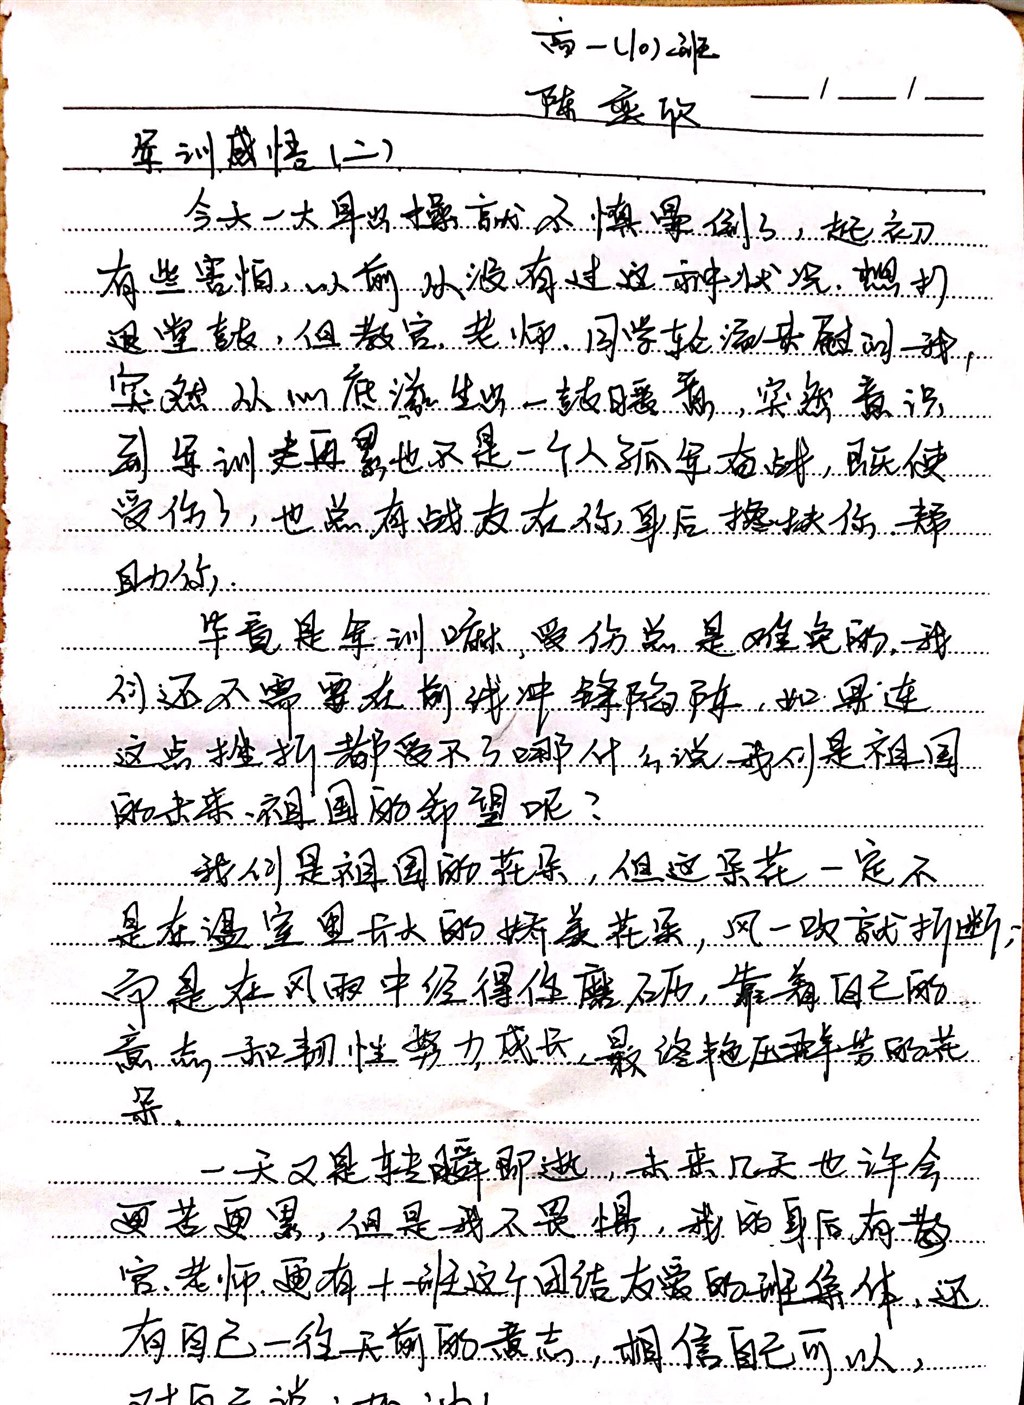 高一(10)班
陈奕欣
军训感悟(二)
今天一大早出操就不慎晕倒了，起初
有些害怕，以前从没有过这种状况，想打
退堂鼓，但教官、老师、同学轮流来慰问我，
突然从心底滋生出一鼓暖意，突然意识
到军训苦再累也不是一个人孤军奋战，既使
受伤了，也总有战友在你身后搀扶你、帮
助你。
毕竟是军训嘛，受伤总是难免的，我
们还不需要在前线冲锋陷阵，如果连
这点挫折都受不了哪什么说我们是祖国
的未来、祖国的希望呢？
我们是祖国的花朵，但这朵花一定不
是在温室里长大的娇美花朵，风一吹就折断；
而是在风雨中经得住磨砺，靠着自己的
意志和韧性努力成长，最终艳压群芳的花
朵。
一天又是转瞬即逝，未来几天也许会
更苦更累，但是我不畏惧，我的身后有教
官、老师、更有十班这个团结友爱的班集体，还
有自己一往无前的意志，相信自己可以，
对自己说：加油！